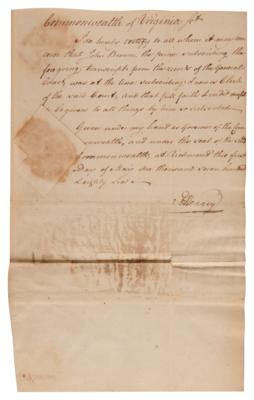 Commonwealth of Virginia Sct.
I do hereby certify to all whom it may con-
cern that John Brown the person subscribing the
foregoing transcript from the records of the General
Court, was at the time subscribing Clerk
of the said Court, and that full faith & credit ought
to be given to all things by him so
Given under my hand as Governor of the Com-
monwealth, and under the seal of the
commonwealth, at Richmond this first
day of May One thousand seven hundred
Eighty Six
P. Henry